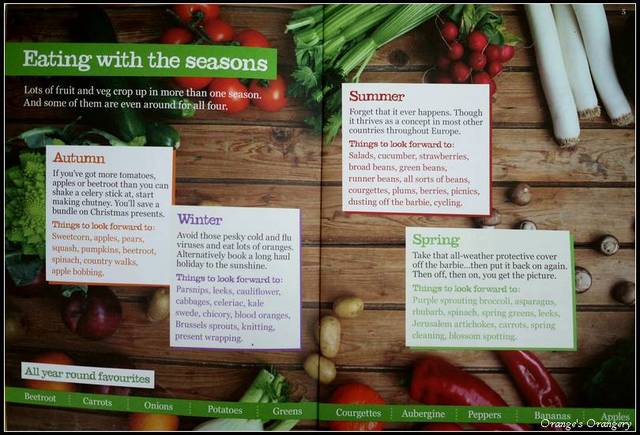 5
Eating with the seasons
Lots of fruit and veg crop up in more than one season.
And some of them are even around for all four.
Autumn
If you've got more tomatoes,
apples or beetroot than you can
shake a celery stick at, start
making chutney. You'll save a
bundle on Christmas presents.
Things to look forward to:
Sweetcorn, apples, pears,
squash, pumpkins, beetroot,
spinach, country walks,
apple bobbing.
Winter
Avoid those pesky cold and flu
viruses and eat lots of oranges.
Alternatively book a long haul
holiday to the sunshine.
Things to look forward to:
Parsnips, leeks, cauliflower,
cabbages, celeriac, kale
swede, chicory, blood oranges,
Brussels sprouts, knitting,
present wrapping.
Summer
Forget that it ever happens. Though
it thrives as a concept in most other
countries throughout Europe.
Things to look forward to:
Salads, cucumber, strawberries,
broad beans, green beans,
runner beans, all sorts of beans,
courgettes, plums, berries, picnics,
dusting off the barbie, cycling.
Spring
Take that all-weather protective cover
off the barbie...then put it back on again.
Then off, then on, you get the picture.
Things to look forward to:
Purple sprouting broccoli, asparagus,
rhubarb, spinach, spring greens, leeks,
Jerusalem artichokes, carrots, spring
cleaning, blossom spotting.
All year round favourites
Beetroot Carrots Onions Potatoes Greens Courgettes Aubergine Peppers Bananas Apples
Orange's Orangery